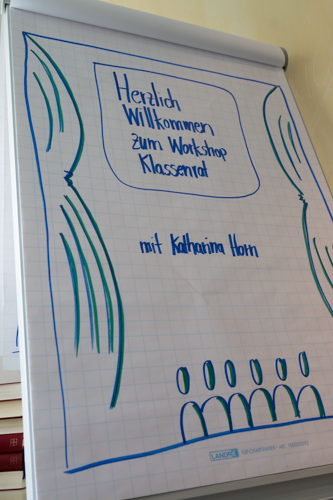 Herzlich
Willkommen
zum Workshop
Klassenrat
mit Katharina Horn
LANDRÉ